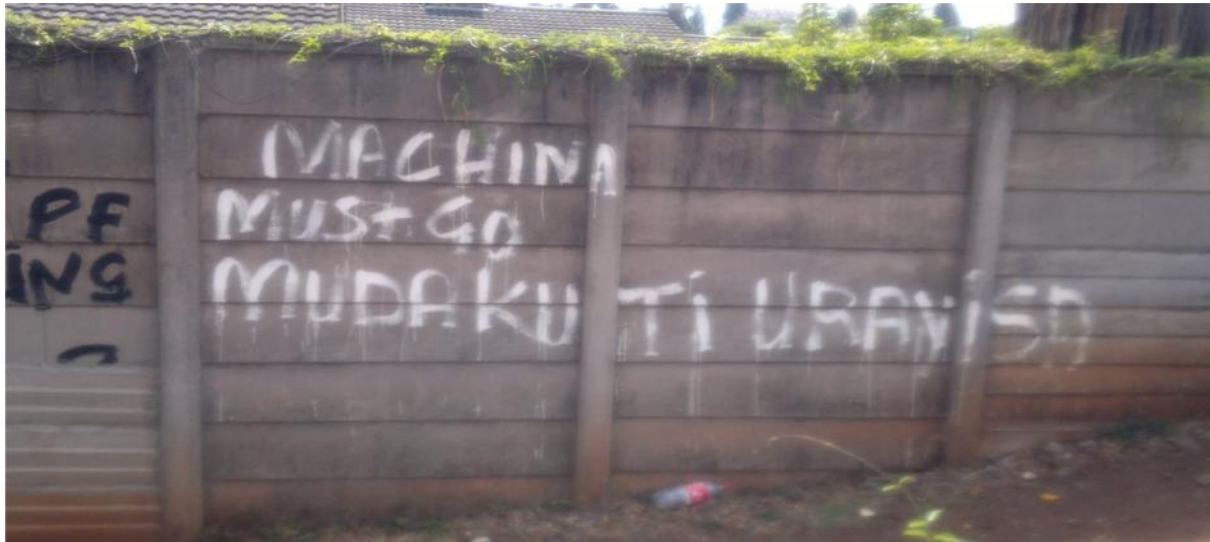 PF
ING
MACHINA
MUST GO
MUDAKUTI URANISA